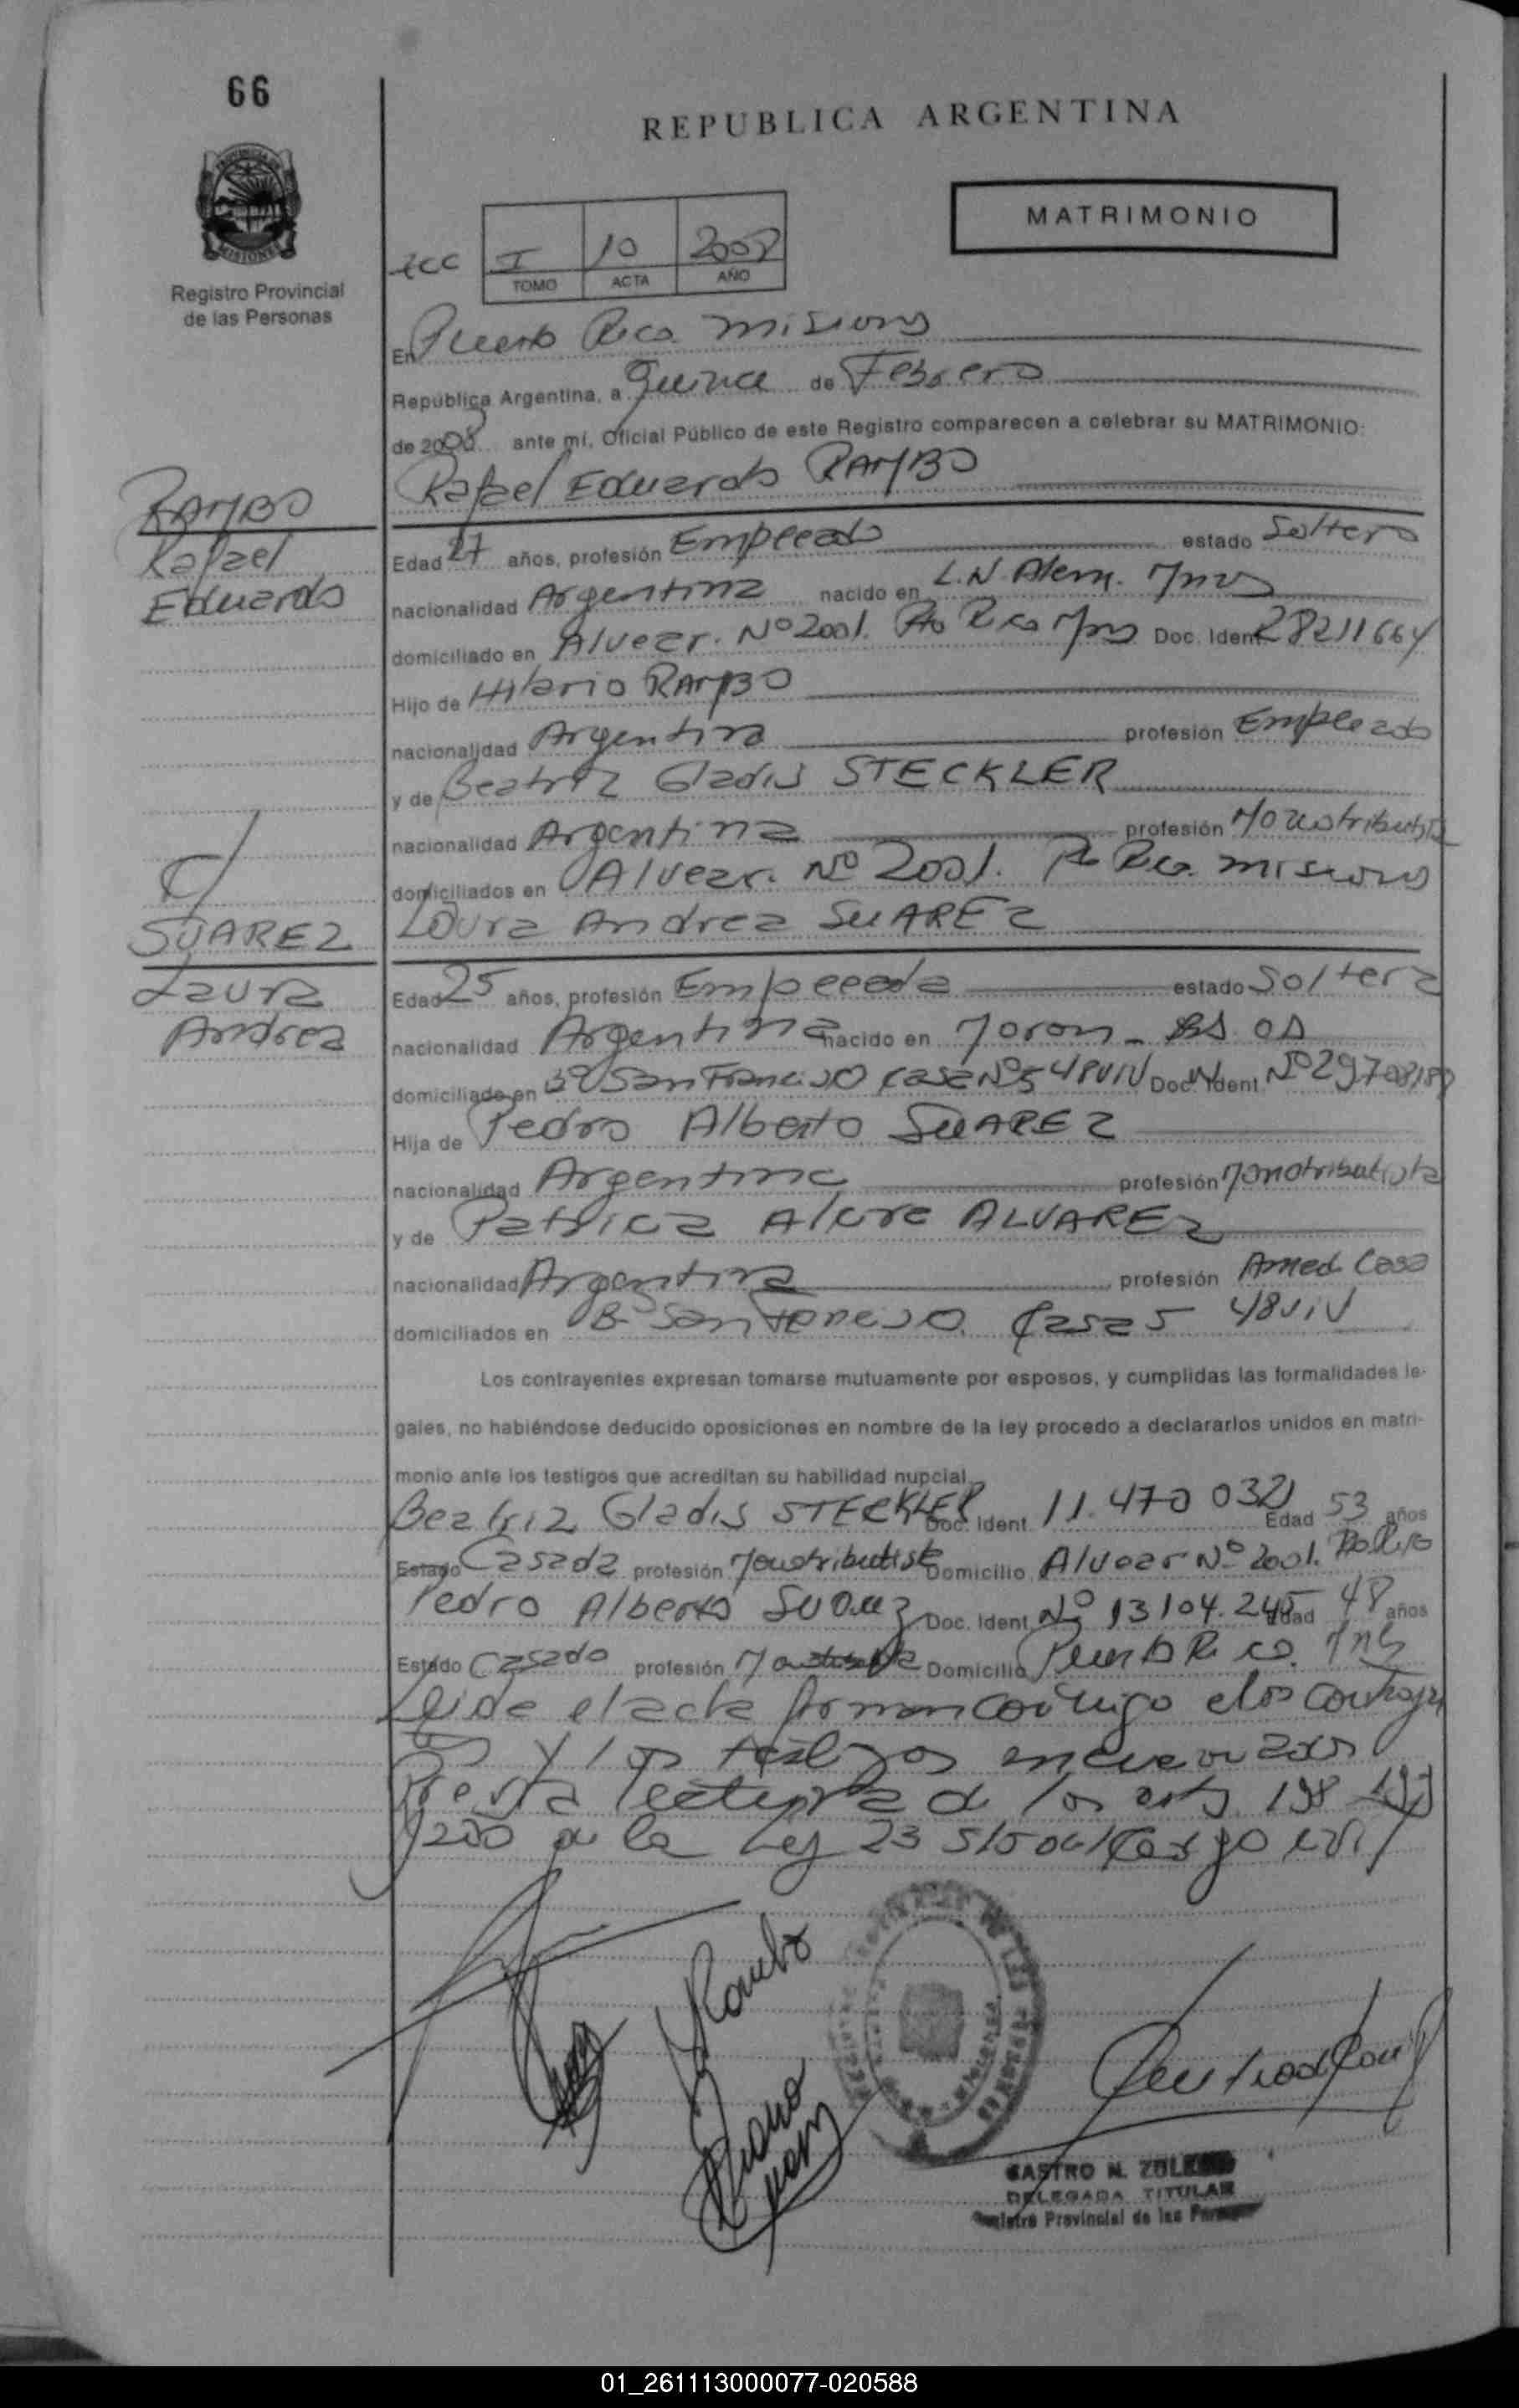 66
REPUBLICA ARGENTINA
MATRIMONIO
PROVINCIA DE
MISIONES
Registro Provincial
de las Personas
I 10 2008
TOMO ACTA AÑO
En Puerto Rico. Misiones
República Argentina, a Quince de Febrero
de 2008 ante mí, Oficial Público de este Registro comparecen a celebrar su MATRIMONIO:
Rafael Eduardo RAMBO
RAMBO
Rafael
Eduardo
Edad 27 años, profesión Empleado estado Soltero
nacionalidad Argentina nacido en L.N. Alem. Mnes
domiciliado en Alvear. Nº 2001. Pto Rico Mns Doc. Ident 28211664
Hijo de Hilario RAMBO
nacionalidad Argentina profesión Empleado
y de Beatriz Gladis STECKLER
nacionalidad Argentina profesión Monotributista
domiciliados en Alvear. Nº 2001. Pto Rico. Misiones
C/
SUAREZ
Laura
Andrea
Laura Andrea SUAREZ
Edad 25 años, profesión Empleada estado Soltera
nacionalidad Argentina nacido en Moron - BS. AS
domiciliado en Bº San Francisco Casa Nº 5 48 VIV Doc. Ident Nº 29708189
Hija de Pedro Alberto SUAREZ
nacionalidad Argentina profesión Monotributista
y de Patricia ALVAREZ
nacionalidad Argentina profesión Ama de Casa
domiciliados en Bº San Francisco. Casa 5 48 VIV
Los contrayentes expresan tomarse mutuamente por esposos, y cumplidas las formalidades le-
gales, no habiéndose deducido oposiciones en nombre de la ley procedo a declararlos unidos en matri-
monio ante los testigos que acreditan su habilidad nupcial.
Beatriz Gladis STECKLER Doc. Ident 11.470 032 Edad 53 años
Estado Casada profesión Monotributista Domicilio Alvear Nº 2001. Pto Rico
Pedro Alberto Suarez Doc. Ident Nº 13104.245 Edad 48 años
Estado Casado profesión Domicilio Puerto Rico. Mns
Leida el acta firman conmigo los contrayen
tes y los testigos
Previa lectura de los arts 198 199
y 200 de la Ley 23515 del Codigo civil
Rambo
CASTRO N.
DELEGADA TITULAR
Registro Provincial de las Personas
01_261113000077-020588